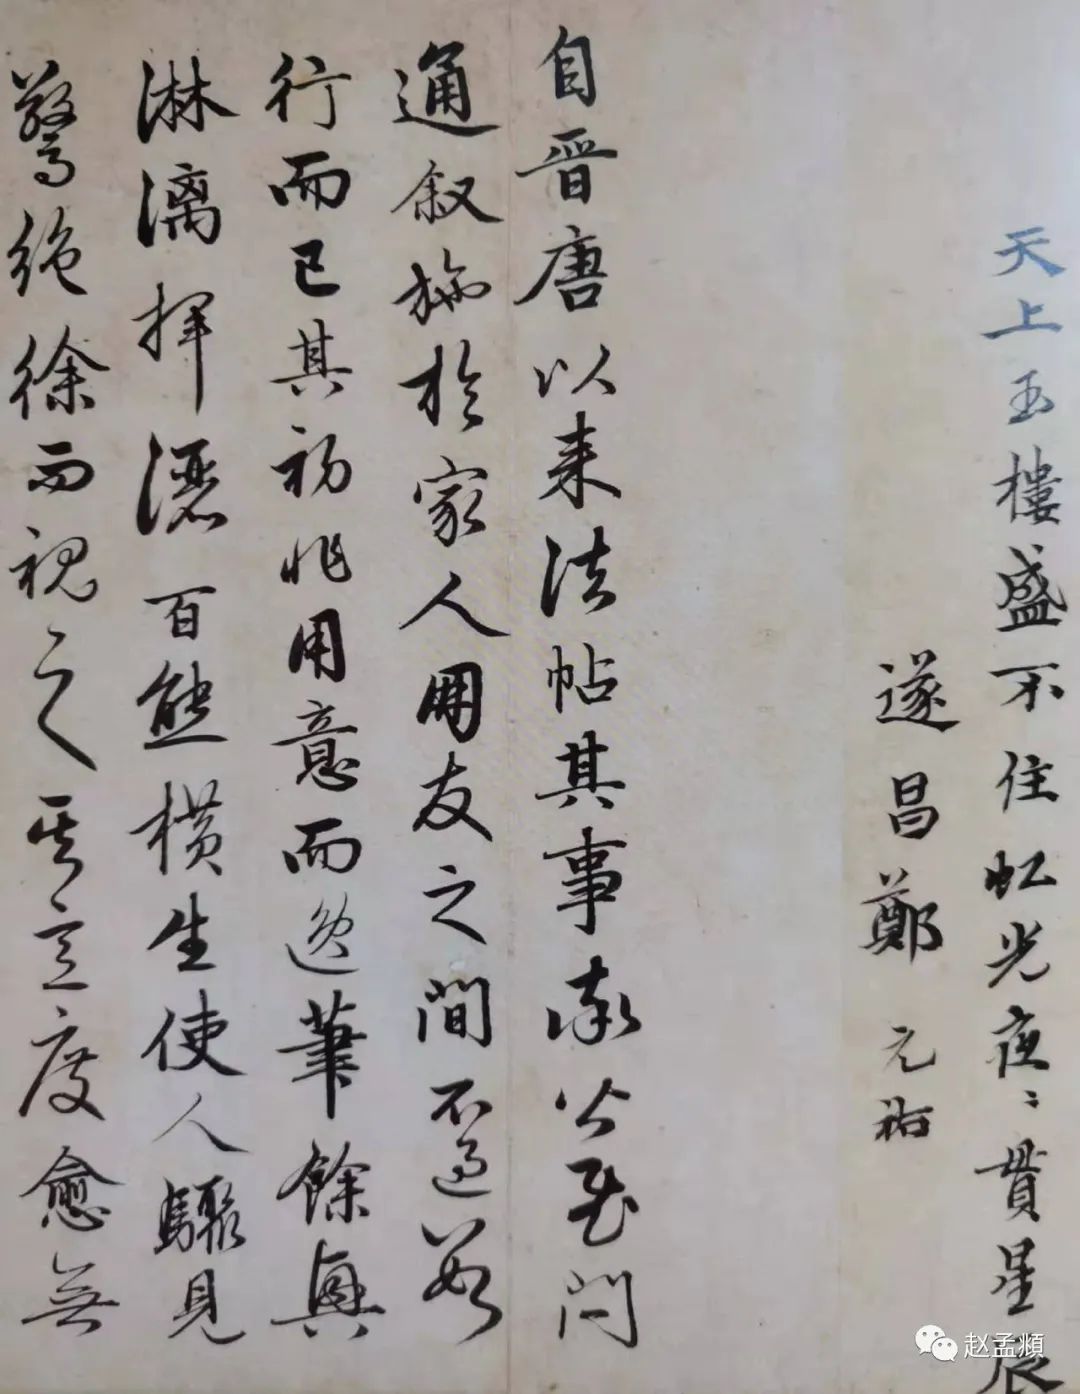 天上玉樓盛不住虹光夜〻貫星辰
遂昌鄭元祐
自晉唐以来法帖其事率公私問
通叙於家人朋友之間不過數
行而已其初非用意而逸筆餘興
淋漓揮灑百態橫生使人驟見
驚絶徐而視之其意度愈無
赵孟頫